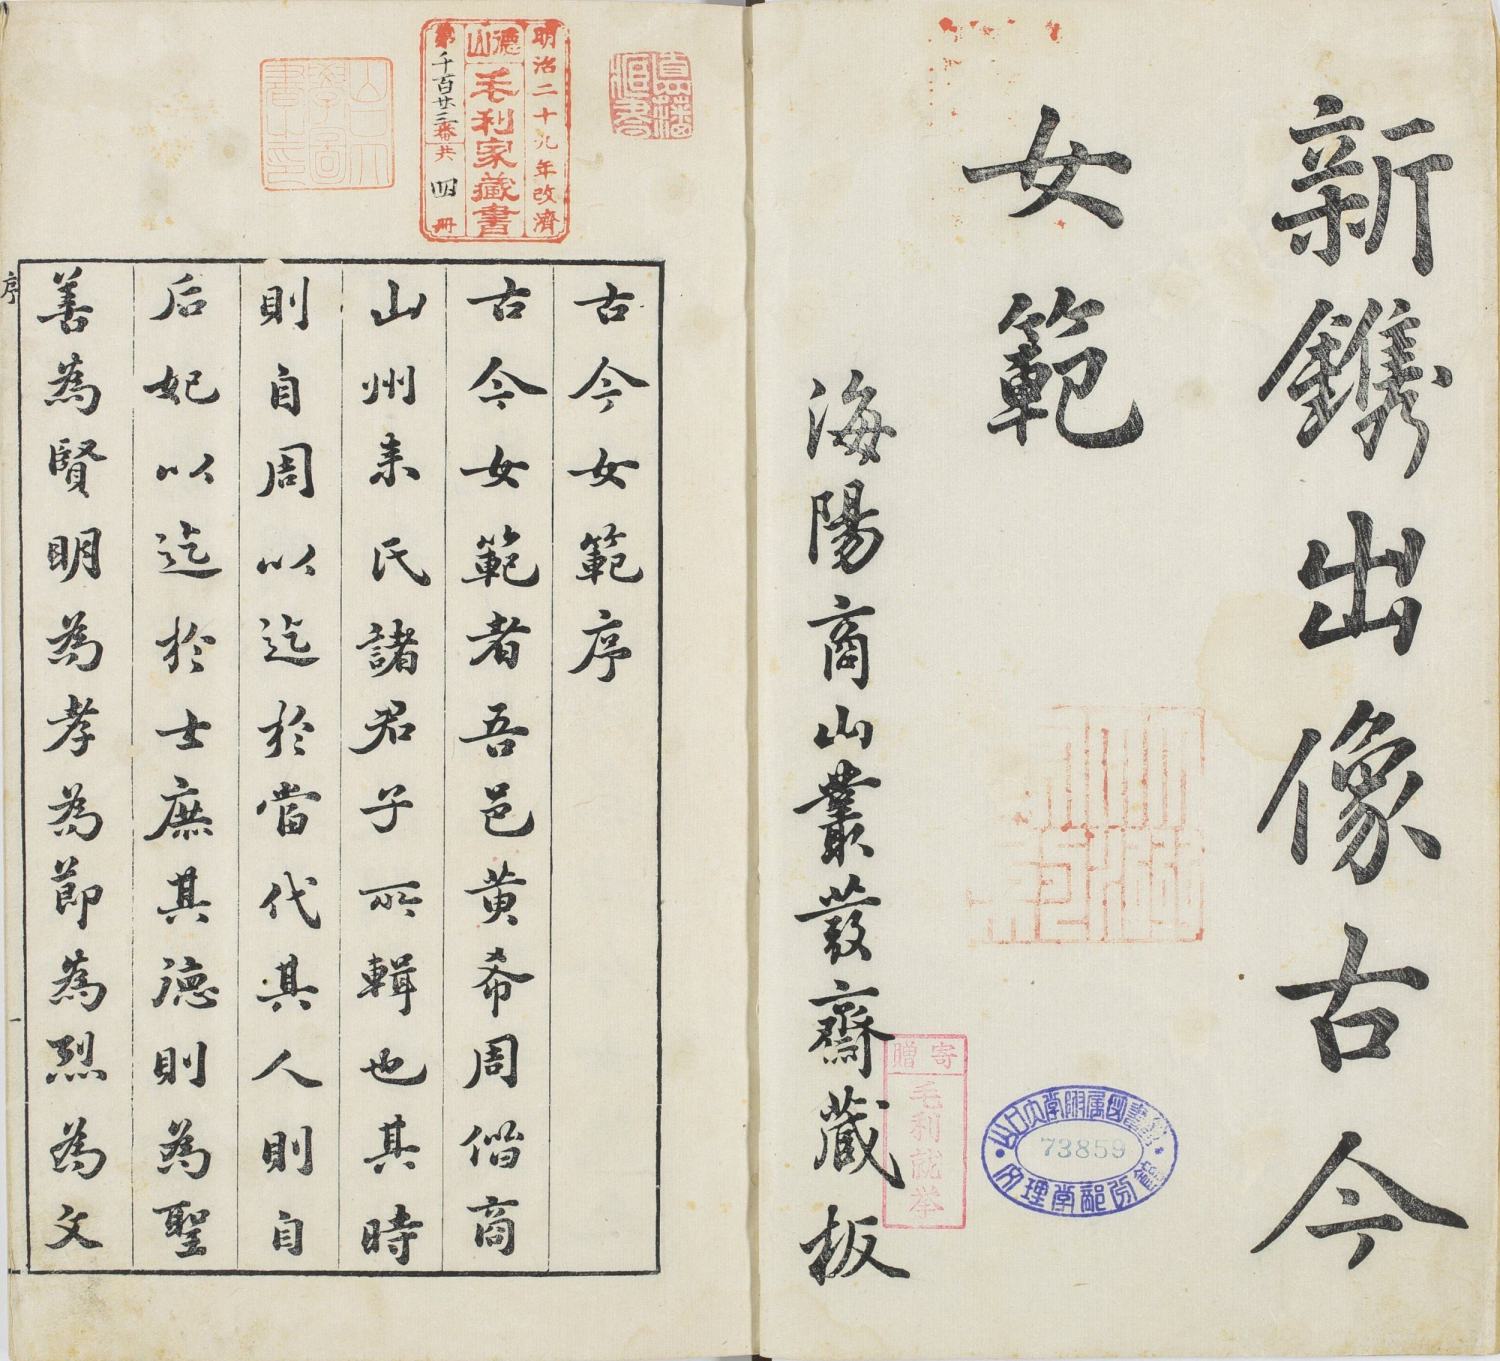 新鐫出像古今
女範
海陽商山叢叢齋藏板
寄贈
毛利就挙
山口大学附属図書館
73859
文理学部分館
明治二十九年改濟
德山
毛利家藏書
第千百廿三番共四冊
古今女範序
古今女範者吾邑黄希周偕商
山州来氏諸君子所輯也其時
則自周以迄於當代其人則自
后妃以迄於士庶其德則為聖
善為賢明為孝為節為烈為文
序
一